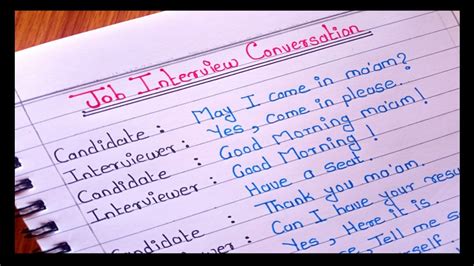 Job Interview Conversation
Candidate : May I come in ma'am?
Interviewer : Yes, come in please.
Candidate : Good Morning ma'am!
Interviewer : Good Morning!
Have a seat.
Candidate : Thank you ma'am.
Interviewer : Can I have your resu
Candidate : Yes, Here it is.
Tell me so